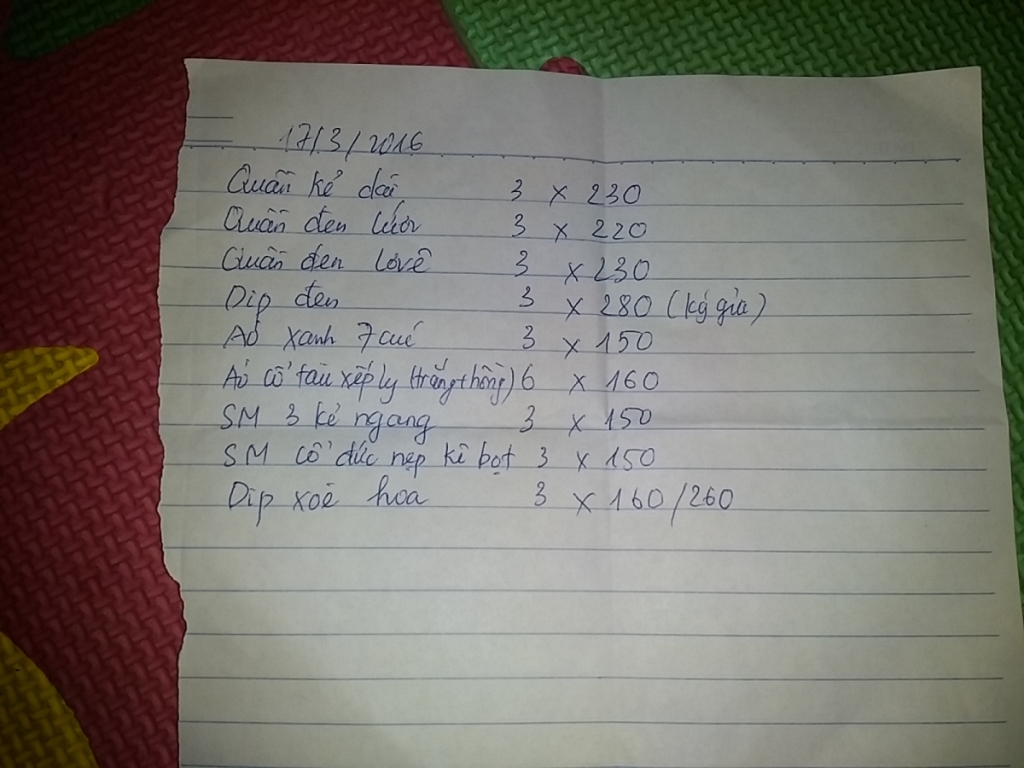 17/3/2016
Quần kẻ dài 3 x 230
Quần đen lưới 3 x 220
Quần đen lơvê 3 x 230
Díp đen 3 x 280 (ký gửi)
Áo xanh 7 cúc 3 x 150
Áo cổ tàu xếp ly (trắng+hồng) 6 x 160
SM 3 kẻ ngang 3 x 150
SM cổ đúc nẹp kí bọt 3 x 150
Díp xoè hoa 3 x 160/260